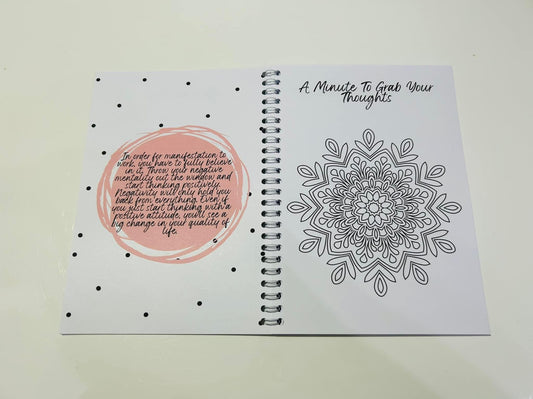 In order for manifestation to
work, you have to fully believe
in it. Throw your negative
mentality out the window and
start thinking positively.
Negativity will only hold you
back from everything. Even if
you just start thinking with a
positive attitude, you'll see a
big change in your quality of
life.
A Minute To Grab Your
Thoughts